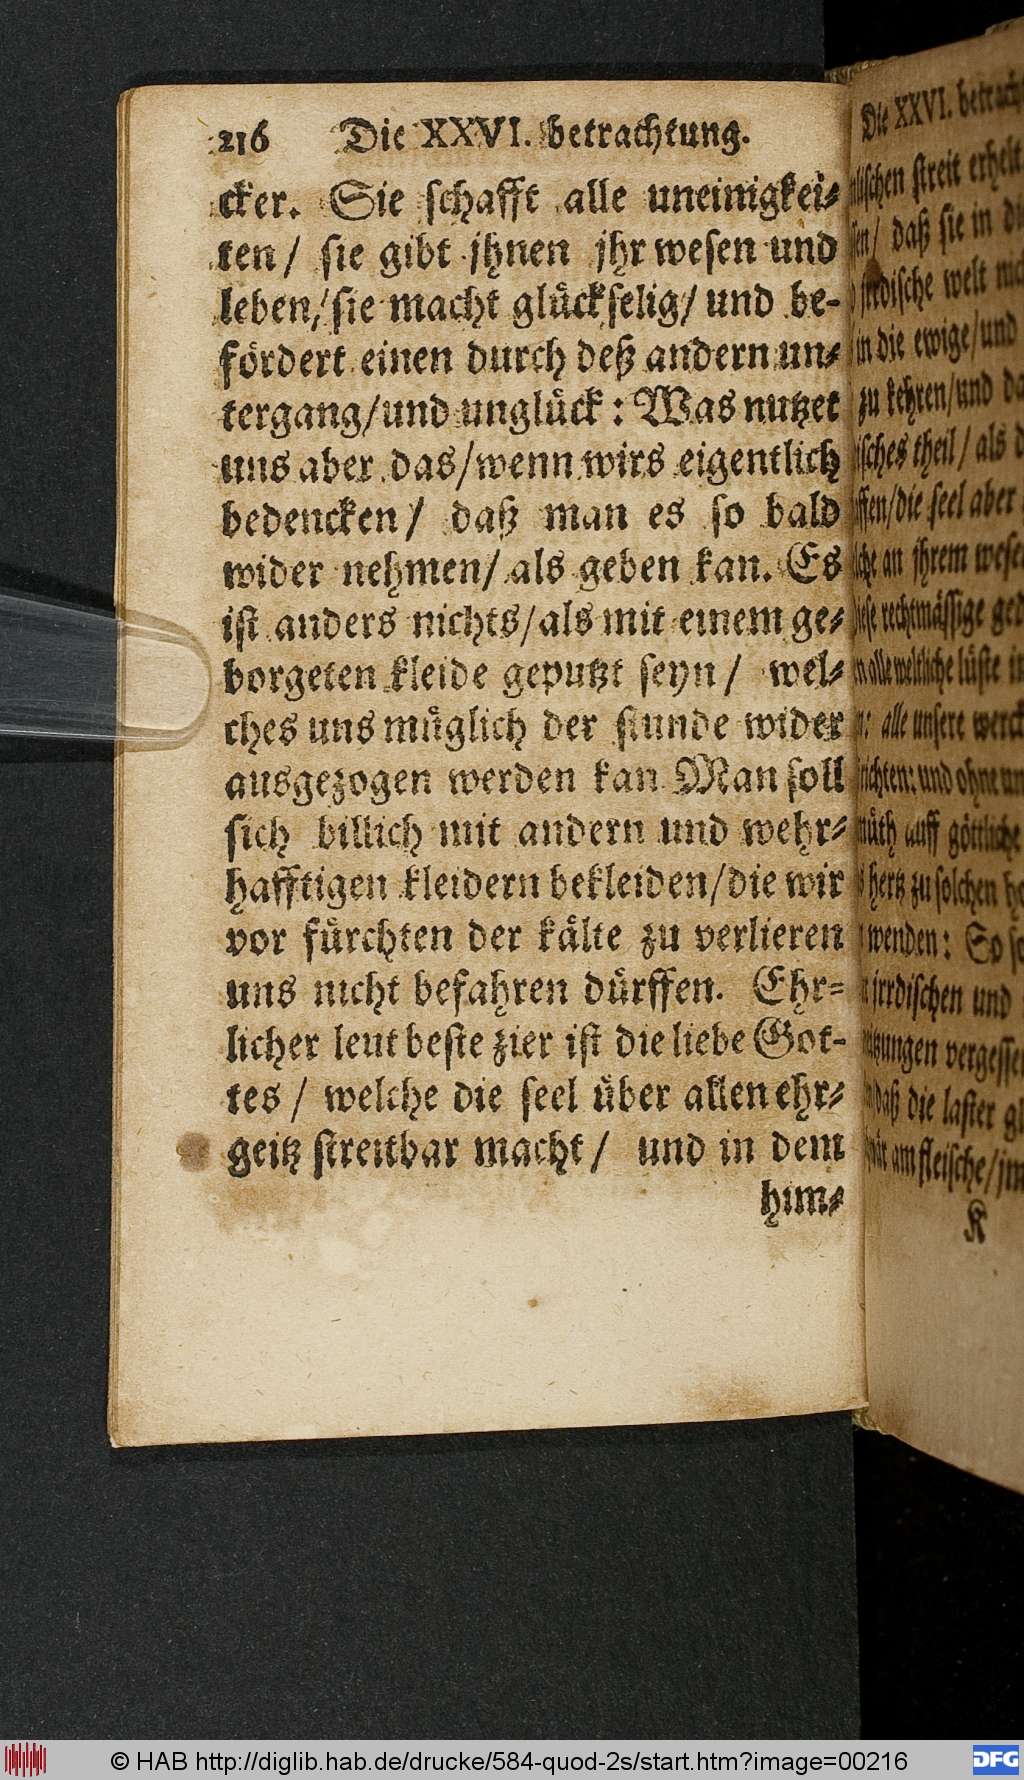 216 Die XXVI. betrachtung.
cker. Sie schafft alle uneinigkei-
ten / sie gibt jhnen jhr wesen und
leben/ sie macht glückselig/ und be-
fördert einen durch deß andern un-
tergang/und unglück: Was nutzet
uns aber das/wenn wirs eigentlich
bedencken / daß man es so bald
wider nehmen/ als geben kan. Es
ist anders nichts/als mit einem ge-
borgeten kleide geputzt seyn / wel-
ches uns müglich der stunde wider
ausgezogen werden kan Man soll
sich billich mit andern und wehr-
hafftigen kleidern bekleiden/die wir
vor fürchten der kälte zu verlieren
uns nicht befahren dürffen. Ehr-
licher leut beste zier ist die liebe Got-
tes / welche die seel über allen ehr-
geitz streitbar macht / und in dem
him-
Die XXVI. betrach
schen streit erhelt
/ daß sie in
irrdische welt
in die ewige/und
zu kehren/und
theil / als
/die seel aber
an jhrem wese
rechtmässige
alle weltliche lüste
alle unsere werck
und ohne
auff göttliche
hertz zu solchen
wenden: So
jrrdischen und
vergesse
daß die laster
am fleische/
K
© HAB http://diglib.hab.de/drucke/584-quod-2s/start.htm?image=00216
DFG